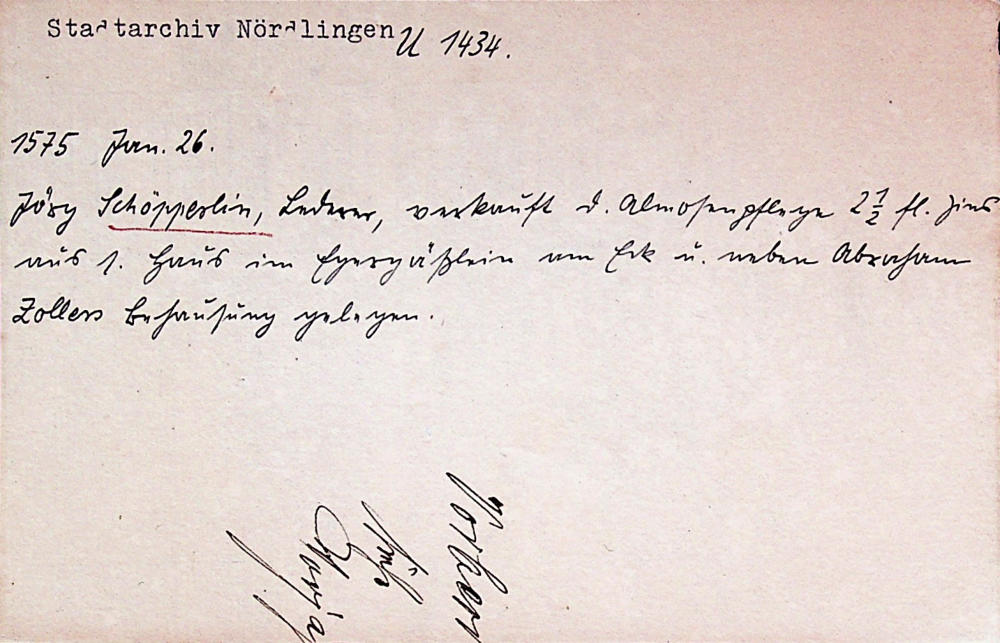 Stadtarchiv Nördlingen U 1434.
1575 Jan. 26.
Jörg Schöpperlin, Lederer, verkauft d. Almosenpflege 2 1/2 fl. Zins
aus s. Haus im Egergäßlein am Eck u. neben Abraham
Zollers Behausung gelegen.